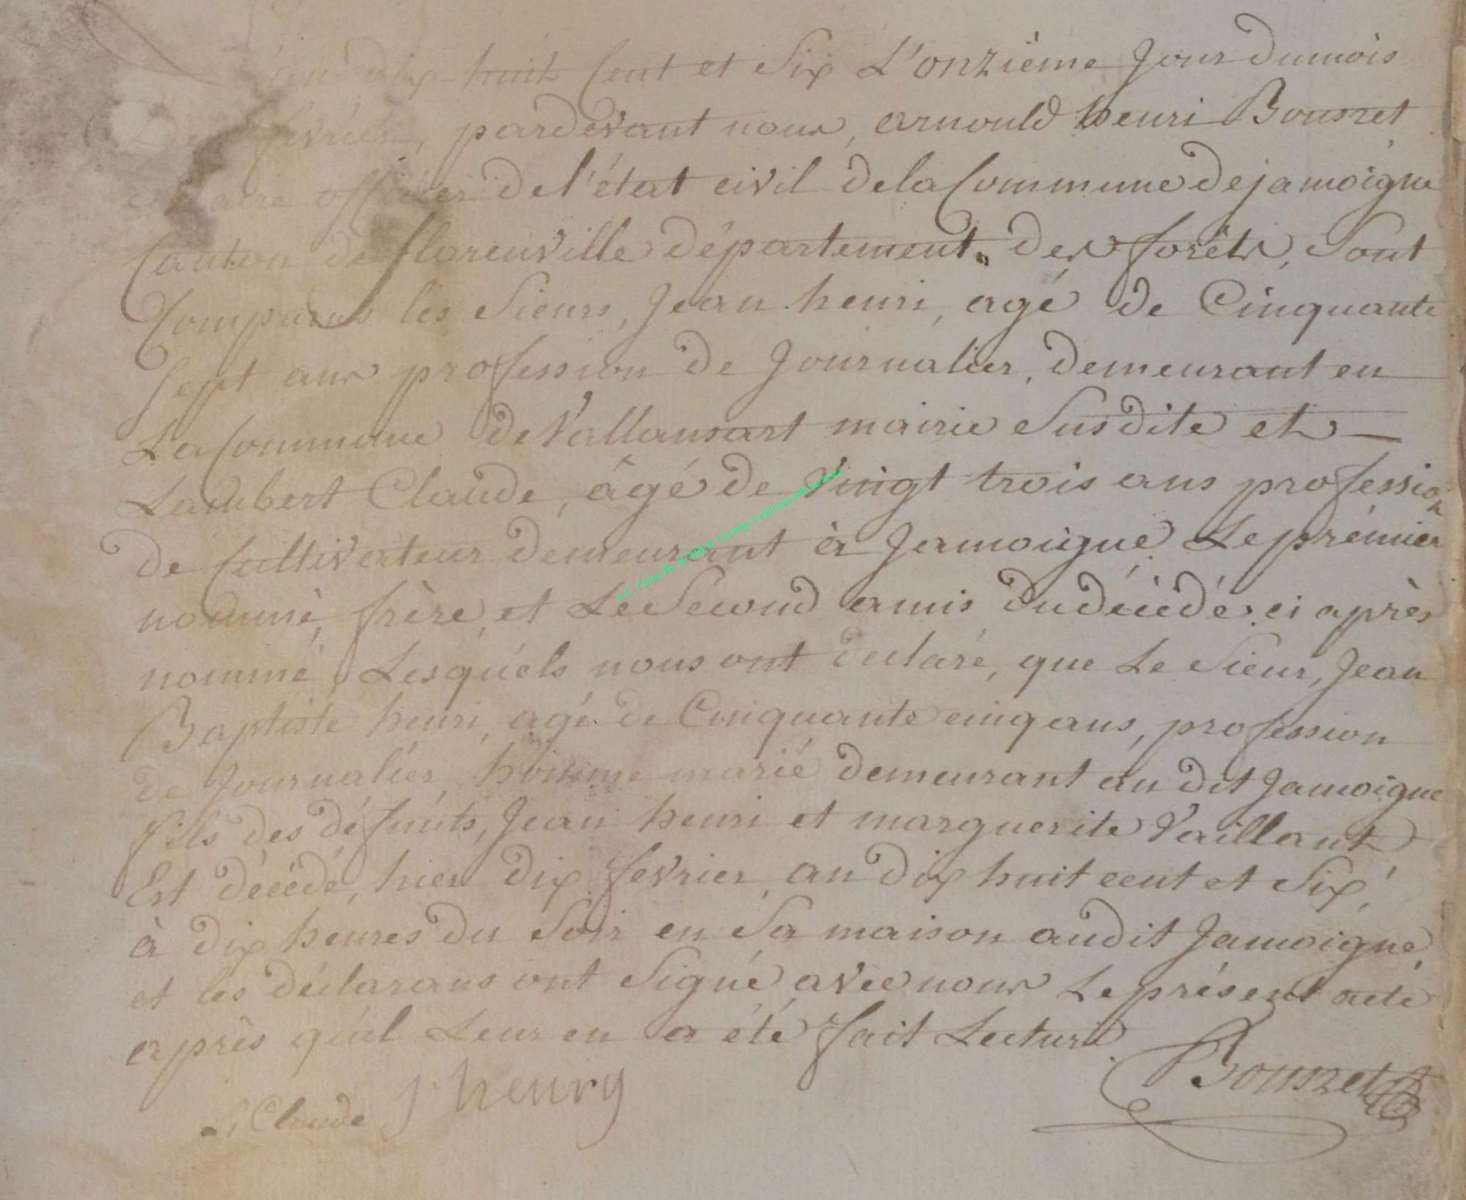 dix huit Cent et Six L'onzième Jour du mois
fevrier, pardevant nous, arnould henri Bounet
maire officier de l'état civil de la Commune de jamoigne
Canton de florenville département des forêts, Sont
Comparus les Sieurs, Jean henri, agé de Cinquante
Sept ans profession de Journalier, demeurant en
La Commune de Vallansart mairie Susdite et
Lambert Claude, âgé de Vingt trois ans profession
de Cultivateur demeurant à Jamoigne Le prémier
nommé, frère, et Le Second amis du décédé ci après
nommé, Lesquéls nous ont declaré, que Le Sieur, Jean
Baptiste henri, agé de Cinquante cinq ans, profession
de Journalier, homme marié demeurant au dit Jamoigne
fils des défunts, Jean henri et marguerite Vaillant
Est décédé, hier dix fevrier, an dix huit cent et Six,
à dix heures du Soir en Sa maison audit Jamoigne,
et les déclarans ont Signé avec nous Le présent acte
après qu'il Leur en a été fait Lecture
Bounet
L Claude J henry